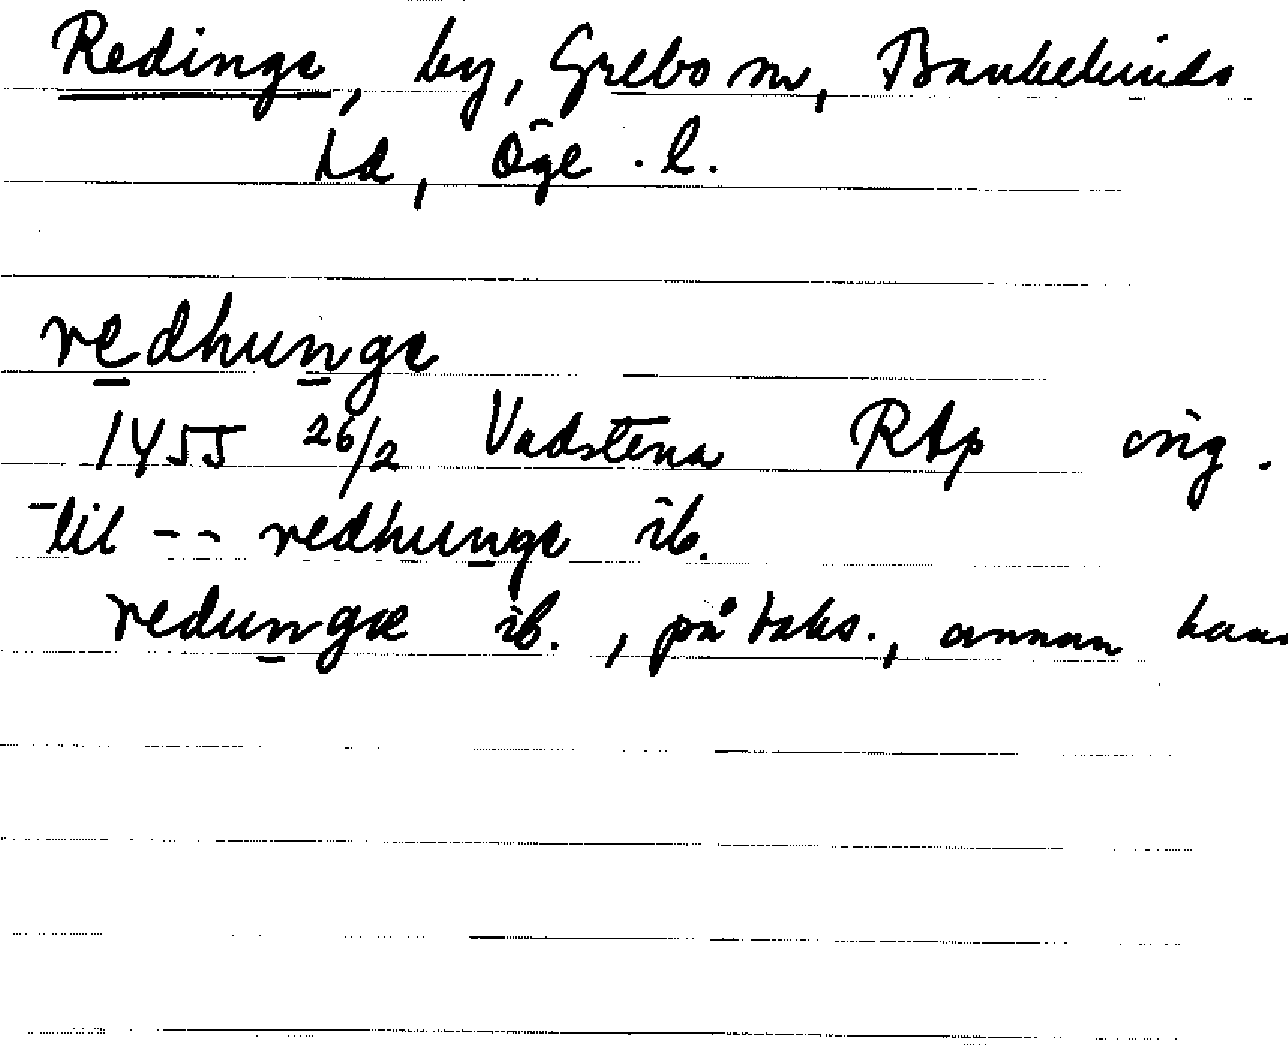 Redinge, by, Grebo sn, Bankekinds
hd, Ög. l.
redhunge
1455 26/2 Vadstena RAp orig.
til -- redhunge ib.
redunge ib., på baks., annan